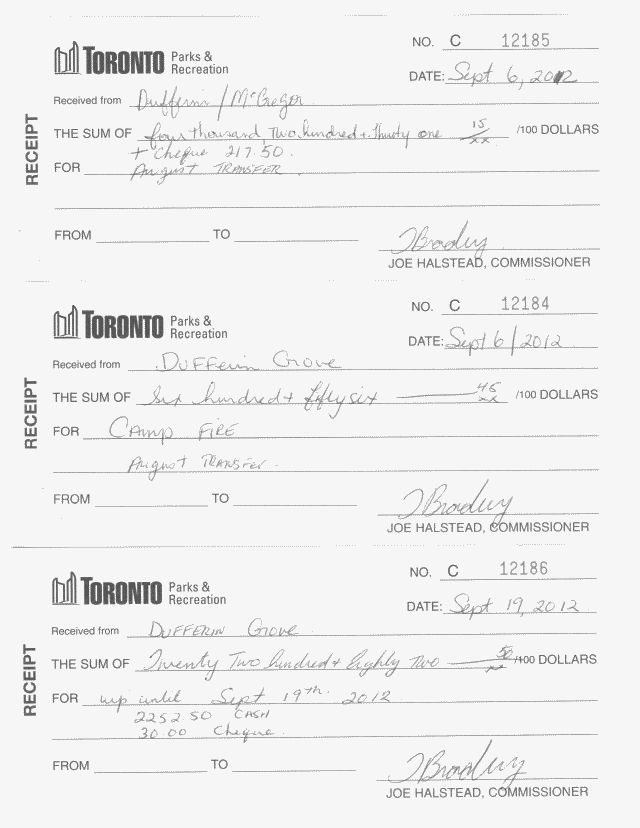 NO. C 12185
TORONTO Parks & Recreation
DATE: Sept 6, 2012
Received from Dufferin / McGregor
RECEIPT
THE SUM OF four thousand, Two hundred + thirty one 15/xx /100 DOLLARS
+ Cheque 217.50.
FOR August TRANSFER.
FROM TO
JBradley
JOE HALSTEAD, COMMISSIONER
NO. C 12184
TORONTO Parks & Recreation
DATE: Sept 6/2012
Received from Dufferin Grove
RECEIPT
THE SUM OF Six hundred + fifty six 45/xx /100 DOLLARS
FOR CAMP FIRE
August TRANSFER.
FROM TO
JBradley
JOE HALSTEAD, COMMISSIONER
NO. C 12186
TORONTO Parks & Recreation
DATE: Sept 19, 2012
Received from DUFFERIN Grove
RECEIPT
THE SUM OF Twenty Two hundred + Eighty Two 50/xx /100 DOLLARS
FOR up until Sept 19th. 2012
2252.50 CASH
30.00 Cheque.
FROM TO
JBradley
JOE HALSTEAD, COMMISSIONER